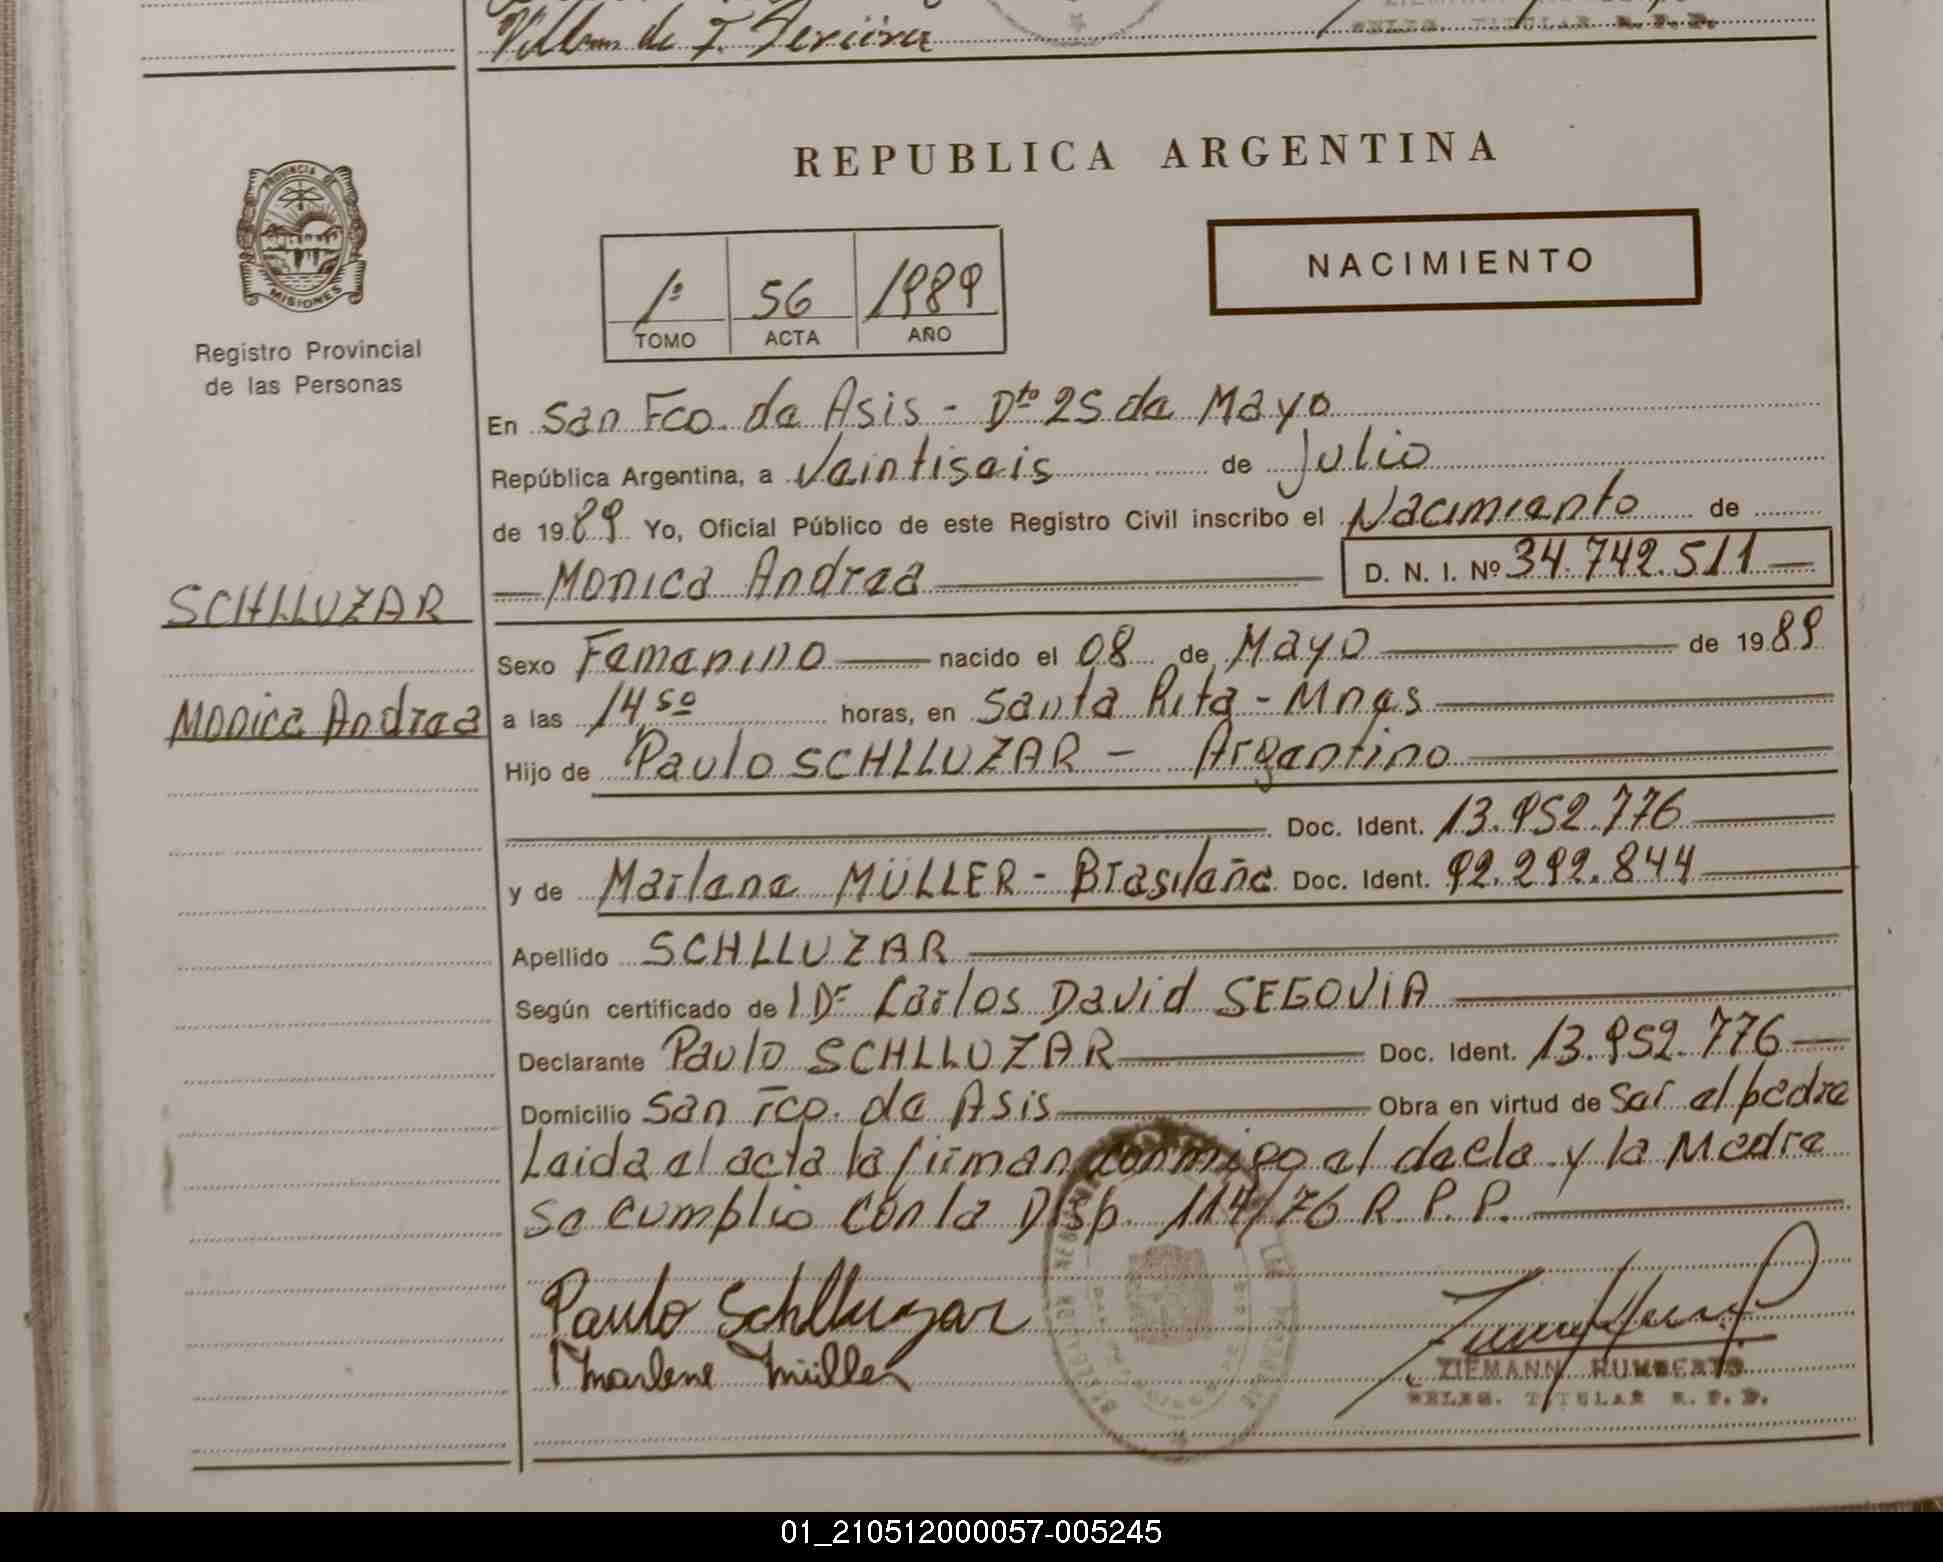 Villan de T. Tereira
DELEG. TITULAR R. P. P.
REPUBLICA ARGENTINA
PROVINCIA DE
MISIONES
Registro Provincial
de las Personas
1º 56 1989
TOMO ACTA AÑO
NACIMIENTO
En San Fco. de Asis - Dto 25 de Mayo
República Argentina, a Veintiseis de Julio
de 1989 Yo, Oficial Público de este Registro Civil inscribo el Nacimiento de
Monica Andrea D. N. I. Nº 34.742.511
SCHLLUZAR
Sexo Femenino nacido el 08 de Mayo de 1989
Monica Andrea
a las 14,50 horas, en Santa Rita - Mnes
Hijo de Paulo SCHLLUZAR - Argentino
Doc. Ident. 13.952.776
y de Marlene MÜLLER - Brasileña Doc. Ident. 92.292.844
Apellido SCHLLUZAR
Según certificado de 1 Dr Carlos David SEGOVIA
Declarante Paulo SCHLLUZAR Doc. Ident. 13.952.776
Domicilio San Fco. de Asis Obra en virtud de ser el padre
Leida el acta la firman conmigo el decla y la Madre
se cumplio con la Disp. 114/76 R. P. P.
Paulo Schlluzar
Marlene Müller
ZIEMANN HUMBERTO
DELEG. TITULAR R. P. P.
01_210512000057-005245